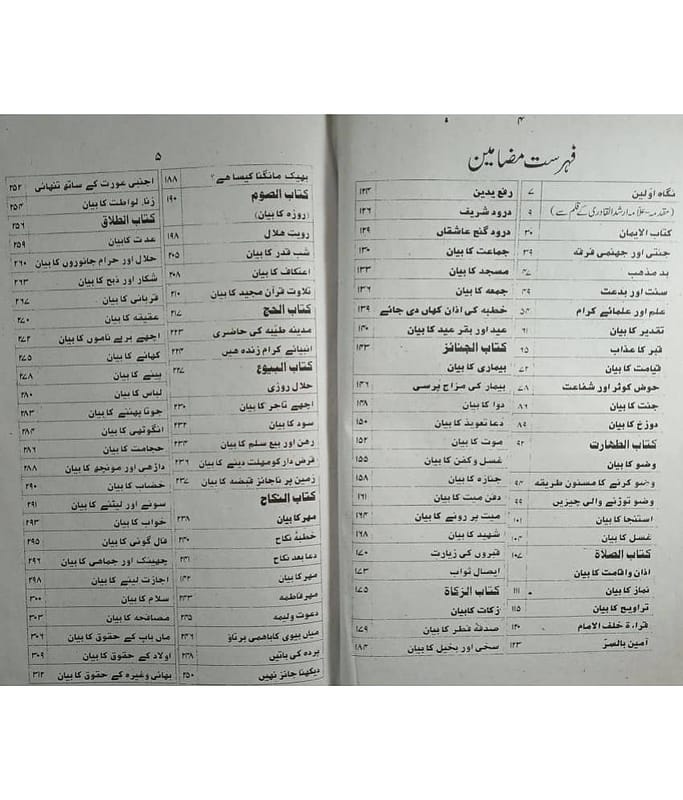 ۴
فہرست مضامین
نگاہ اوّلین ۷
(مقدمہ - علامہ ارشد القادری کے قلم سے) ۹
کتاب الایمان ۳۰
جنتی اور جہنمی فرقہ ۳۹
بد مذہب ۴۷
سنت اور بدعت ۴۹
علم اور علمائے کرام ۵۴
تقدیر کا بیان ۶۱
قبر کا عذاب ۶۵
قیامت کا بیان ۷۲
حوض کوثر اور شفاعت ۷۸
جنت کا بیان ۸۶
دوزخ کا بیان ۸۹
کتاب الطهارت ۹۲
وضو کا بیان
وضو کرنے کا مسنون طریقہ ۹۴
وضو توڑنے والی چیزیں ۹۹
استنجا کا بیان ۱۰۱
غسل کا بیان ۱۰۴
کتاب الصلاة ۱۰۷
اذان واقامت کا بیان
نماز کا بیان ۱۱۱
تراویح کا بیان ۱۱۵
قراءة خلف الامام ۱۲۰
آمین بالسرّ ۱۲۳
رفع یدین ۱۲۴
درود شریف ۱۲۶
درود گنج عاشقاں ۱۲۹
جماعت کا بیان ۱۳۰
مسجد کا بیان ۱۳۳
جمعہ کا بیان ۱۳۶
خطبہ کی اذان کہاں دی جائے ۱۳۹
عید اور بقر عید کا بیان ۱۴۰
کتاب الجنائز ۱۴۳
بیماری کا بیان
بیمار کی مزاج پرسی ۱۴۶
دوا کا بیان ۱۴۸
دعا تعویذ کا بیان ۱۵۰
موت کا بیان ۱۵۲
غسل و کفن کا بیان ۱۵۵
جنازہ کا بیان ۱۵۸
دفن میت کا بیان ۱۶۱
میت پر رونے کا بیان ۱۶۴
شہید کا بیان ۱۶۸
قبروں کی زیارت ۱۷۰
ایصال ثواب ۱۷۳
کتاب الزکاة ۱۷۵
زکات کا بیان
صدقۂ فطر کا بیان ۱۷۹
سخی اور بخیل کا بیان ۱۸۴
۵
بھیک مانگنا کیسا ہے؟ ۱۸۸
کتاب الصوم ۱۹۰
(روزہ کا بیان)
رویت ھلال ۱۹۸
شب قدر کا بیان ۲۰۵
اعتکاف کا بیان ۲۰۸
تلاوت قرآن مجید کا بیان ۲۱۰
کتاب الحج ۲۱۷
مدینہ طیبہ کی حاضری ۲۲۳
انبیائے کرام زندہ ہیں ۲۲۴
کتاب البیوع ۲۲۷
حلال روزی
اچھے تاجر کا بیان ۲۳۰
سود کا بیان ۲۳۲
رهن اور بیع سلم کا بیان ۲۳۴
قرض دار کو مہلت دینے کا بیان ۲۳۶
زمین پر ناجائز قبضہ کا بیان ۲۳۷
کتاب النکاح
مہر کا بیان ۲۳۸
خطبۂ نکاح ۲۴۰
دعا بعد نکاح ۲۴۱
مہر کا بیان
مہر فاطمہ
دعوت ولیمہ
میاں بیوی کا باهمی برتاؤ
پردہ کی باتیں
دیکھنا جائز نہیں ۲۵۰
اجنبی عورت کے ساتھ تنہائی ۲۵۲
زنا، لواطت کا بیان ۲۵۴
کتاب الطلاق ۲۵۶
عدت کا بیان ۲۵۹
حلال اور حرام جانوروں کا بیان ۲۶۰
شکار اور ذبح کا بیان ۲۶۳
قربانی کا بیان ۲۶۷
عقیقہ کا بیان ۲۷۰
اچھے برے ناموں کا بیان ۲۷۲
کھانے کا بیان ۲۷۵
پینے کا بیان ۲۷۸
لباس کا بیان ۲۸۰
جوتا پہننے کا بیان ۲۸۳
انگوٹھی کا بیان ۲۸۴
حجامت کا بیان ۲۸۶
داڑھی اور مونچھ کا بیان ۲۸۸
خضاب کا بیان ۲۹۰
سونے اور لیٹنے کا بیان ۲۹۱
خواب کا بیان ۲۹۳
فال گوئی کا بیان ۲۹۵
چھینک اور جماهی کا بیان ۲۹۶
اجازت لینے کا بیان ۲۹۸
سلام کا بیان ۳۰۰
مصافحہ کا بیان ۳۰۳
ماں باپ کے حقوق کا بیان ۳۰۶
اولاد کے حقوق کا بیان ۳۰۹
بھائی وغیرہ کے حقوق کا بیان ۳۱۲